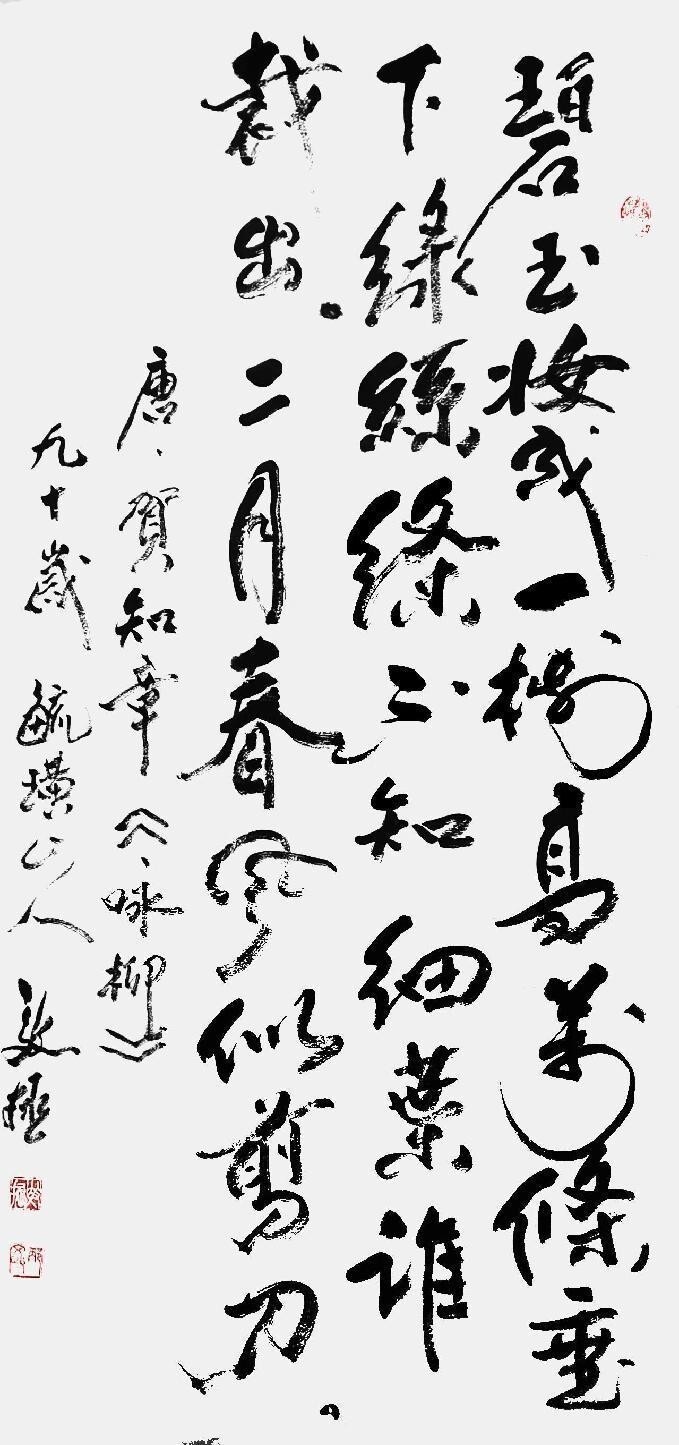 碧玉妆成一樹高萬條垂
下綠絲縧不知細葉誰
裁出。二月春风似剪刀。
唐、賀知章《咏柳》
九十歲 毓璜山人